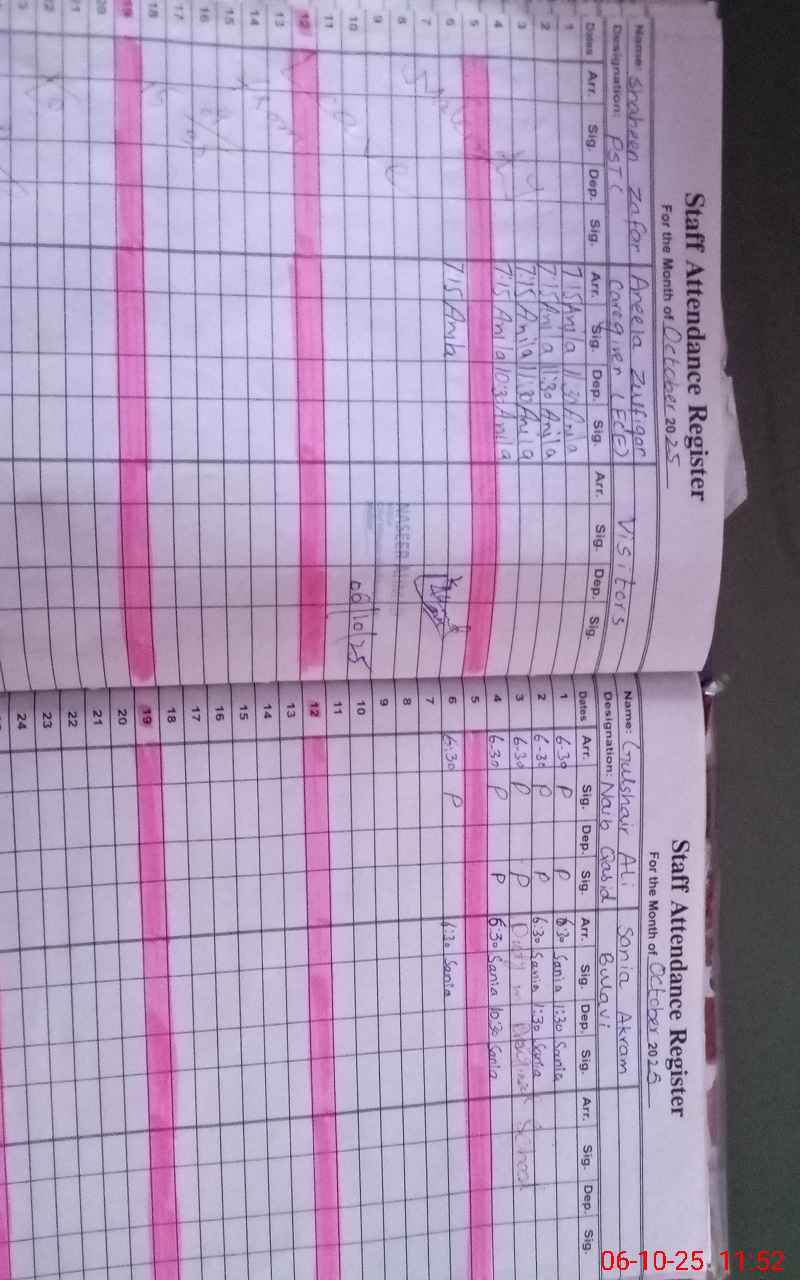 Staff Attendance Register
For the Month of October 2025
Name: Shaheen Zafar Aneela Zulfiqar Visitors
Designation: PST Caregiver (ECE)
Dates Arr. Sig. Dep. Sig. Arr. Sig. Dep. Sig. Arr. Sig. Dep. Sig.
1 7:15 Anila 11:30 Anila
2 7:15 Anila 11:30 Anila
3 7:15 Anila 11:30 Anila
4 7:15 Anila 10:30 Anila
5
6 7:15 Anila
7
8 NASEER
9
10 06/10/25
11
12
13
14
15
16
17
18
19
20
21
22
Staff Attendance Register
For the Month of October 2025
Name: Gulshair Ali Sania Akram
Designation: Naib Qasid Bulavi
Dates Arr. Sig. Dep. Sig. Arr. Sig. Dep. Sig. Arr. Sig. Dep. Sig.
1 6.30 P P 6:30 Sania 1:30 Sania
2 6-30 P P 6:30 Sania 1:30 Sania
3 6.30 P P Duty School
4 6.30 P P 6:30 Sania 10:30 Sania
5
6 6:30 P 6:30 Sania
7
8
9
10
11
12
13
14
15
16
17
18
19
20
21
22
23
24
06-10-25. 11:52